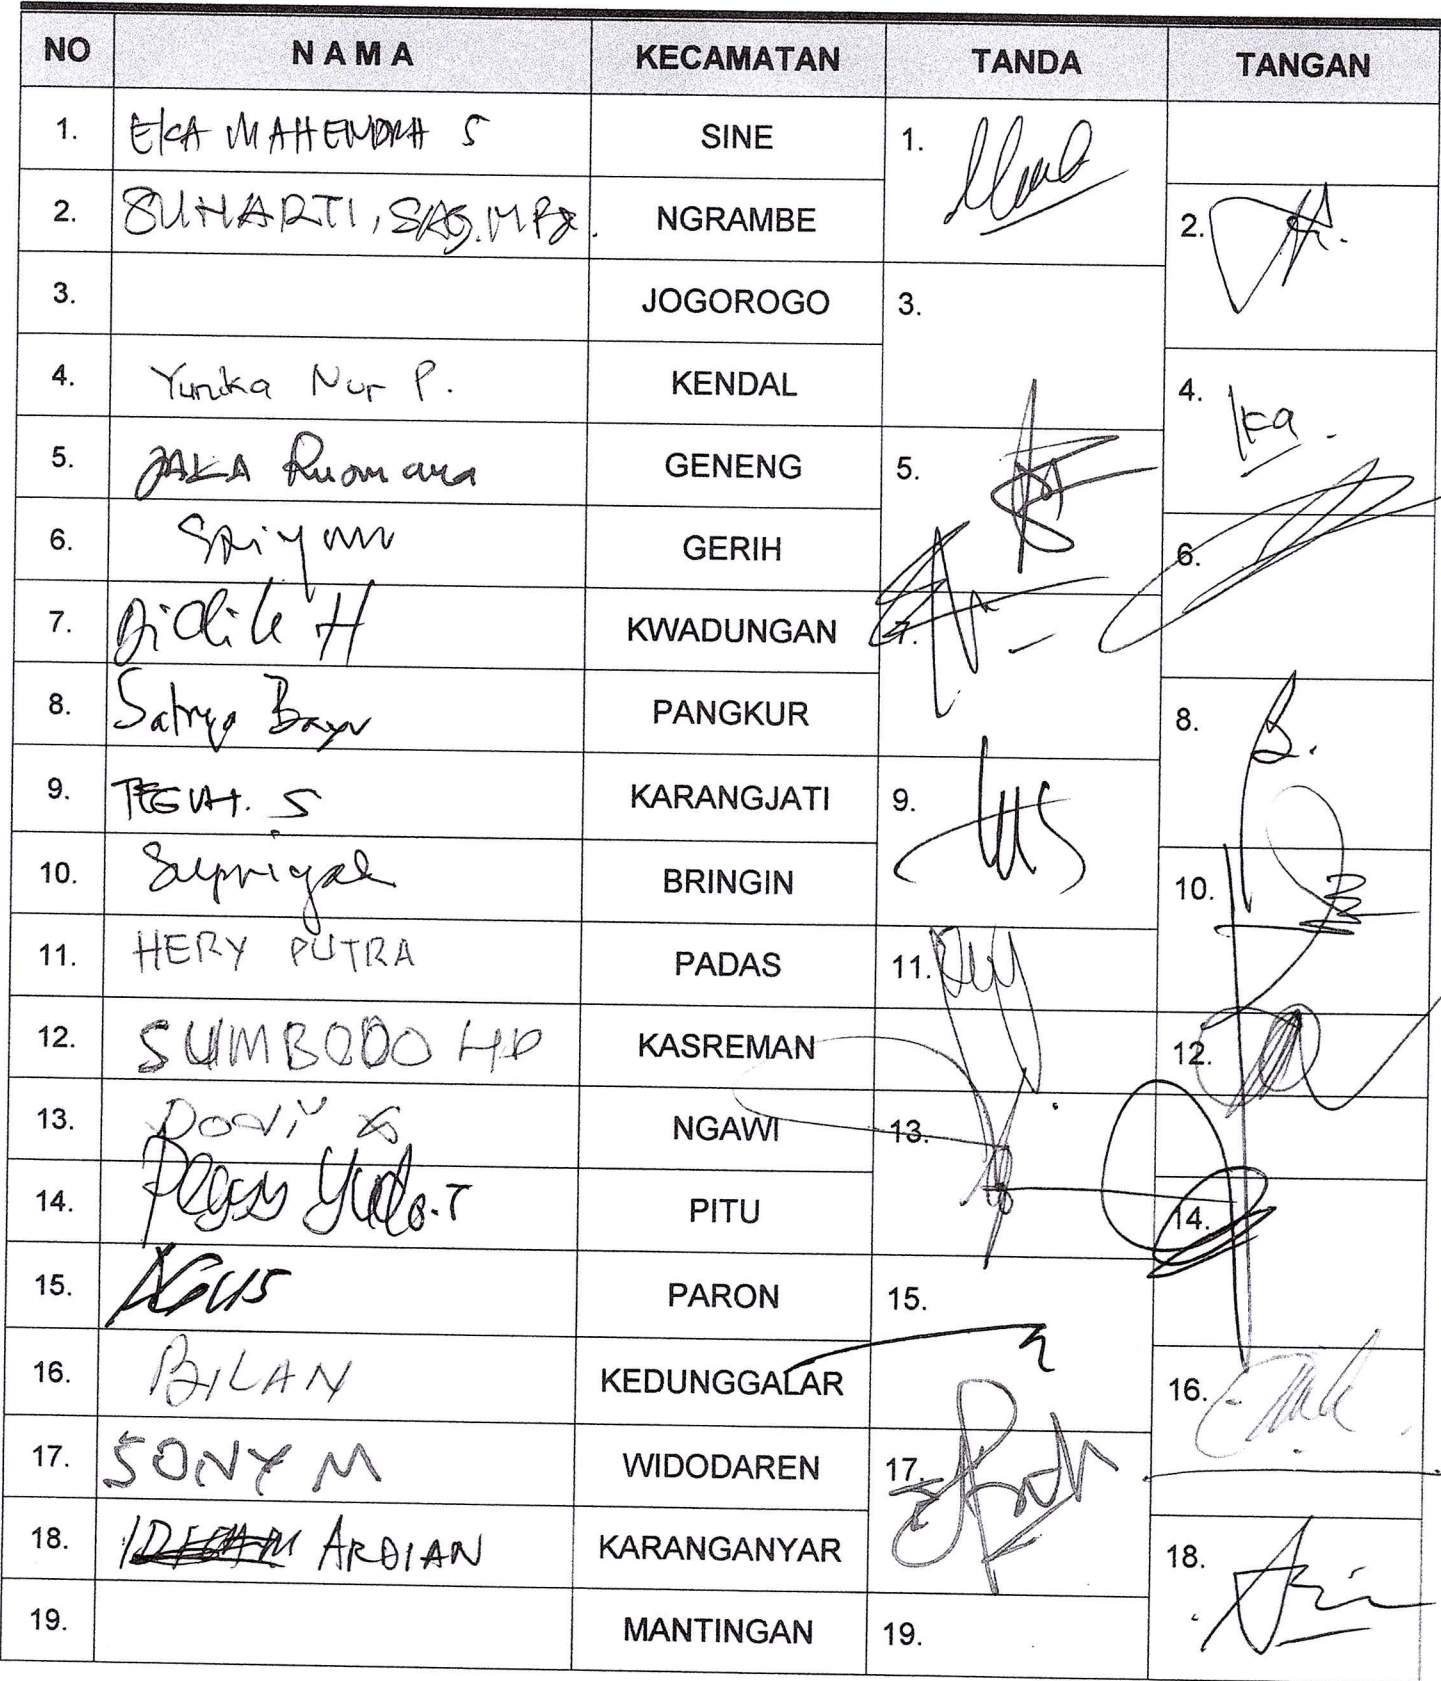 NO NAMA KECAMATAN TANDA TANGAN
1. EKA MAHENDRA S SINE 1.
2. SUHARTI, SAg. MPd. NGRAMBE 2.
3. JOGOROGO 3.
4. Yunika Nur P. KENDAL 4. Ika.
5. JAKA GENENG 5.
6. GERIH 6.
7. Didik H KWADUNGAN 7.
8. Satryo Bayu PANGKUR 8.
9. TEGUH. S KARANGJATI 9.
10. BRINGIN 10.
11. HERY PUTRA PADAS 11.
12. SUMBODO HP KASREMAN 12.
13. NGAWI 13.
14. PITU 14.
15. AGUS PARON 15.
16. BILAN KEDUNGGALAR 16.
17. SONY M WIDODAREN 17.
18. ARDIAN KARANGANYAR 18.
19. MANTINGAN 19.